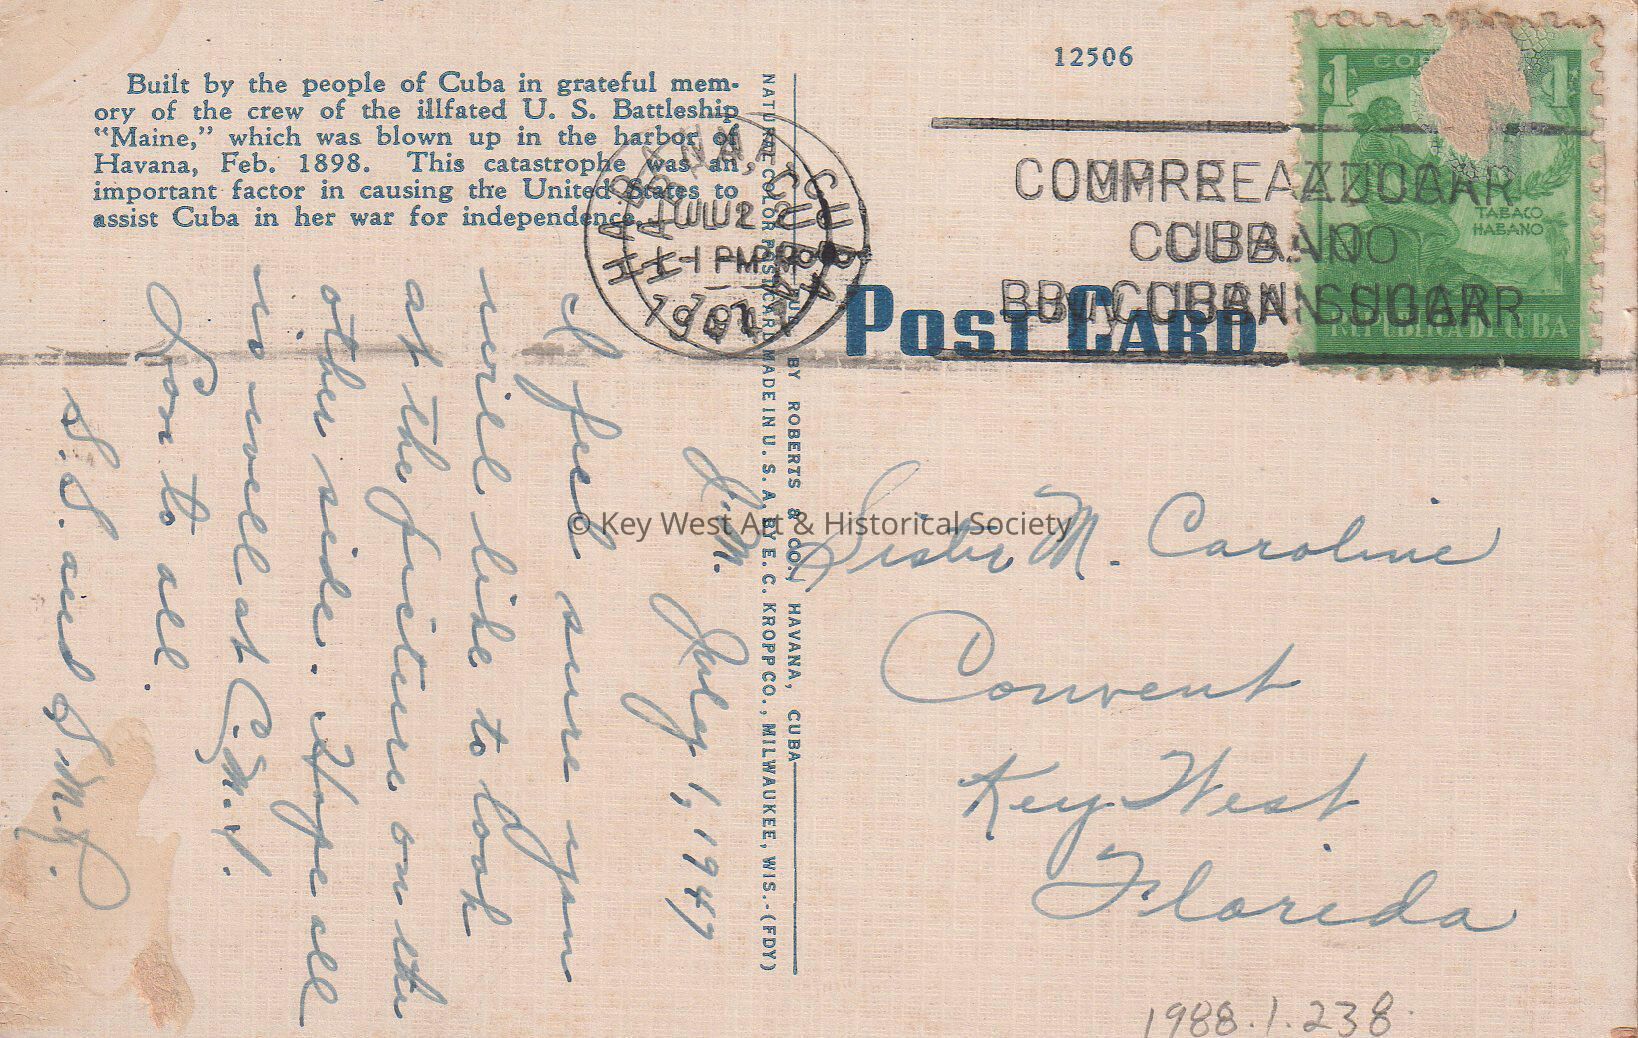 12506
Built by the people of Cuba in grateful mem-
ory of the crew of the illfated U. S. Battleship
"Maine," which was blown up in the harbor of
Havana, Feb. 1898. This catastrophe was an
important factor in causing the United States to
assist Cuba in her war for independence.
HABANA, CUBA
JUL 2
1 PM
1947
COMPRE AZUCAR
CUBANO
BUY CUBAN SUGAR
1 1
TABACO
HABANO
REPUBLICA DE CUBA
POST CARD
BY ROBERTS & CO., HAVANA, CUBA
NATURE COLOR POST CARD MADE IN U. S. A. BY E. C. KROPP CO., MILWAUKEE, WIS.-(FDY)
J.M.
July 1, 1947
I feel sure you
will like to look
at the picture on the
other side. Hope all
is well at
Love to all.
S.S. and
Sister M. Caroline
Convent
Key West
Florida
© Key West Art & Historical Society
1988.1.238